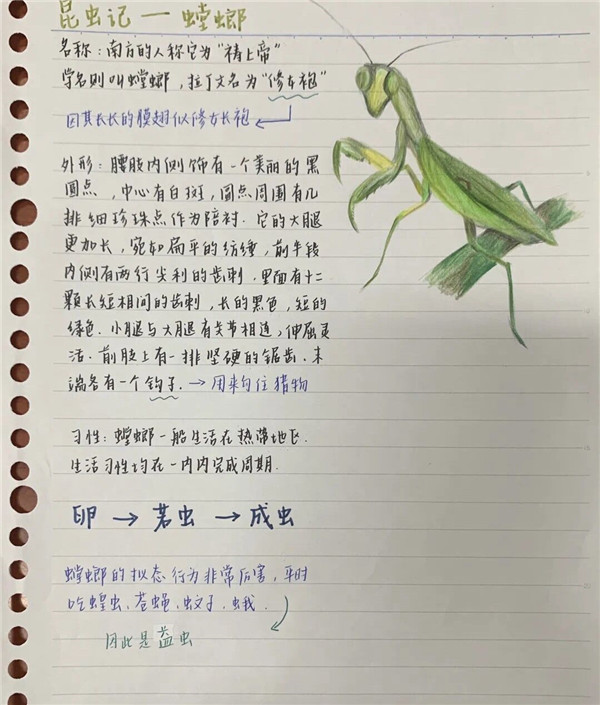 昆虫记一螳螂
名称：南方的人称它为“祷上帝”
学名则叫螳螂，拉丁文名为“修女袍”
因其长长的膜翅似修女长袍
外形：腰肢内侧饰有一个美丽的黑
圆点，中心有白斑，圆点周围有几
排细珍珠点作为陪衬．它的大腿
更加长，宛如扁平的纺锤，前半段
内侧有两行尖利的齿刺．里面有十二
颗长短相间的齿刺，长的黑色，短的
绿色．小腿与大腿有关节相连，伸屈灵
活．前肢上有一排坚硬的锯齿．末
端各有一个钩子．→用来钩住猎物
习性：螳螂一般生活在热带地区．
生活习性均在一内内完成周期．
卵→若虫→成虫
螳螂的拟态行为非常厉害，平时
吃蝗虫、苍蝇、蚊子、蛾．
因此是益虫